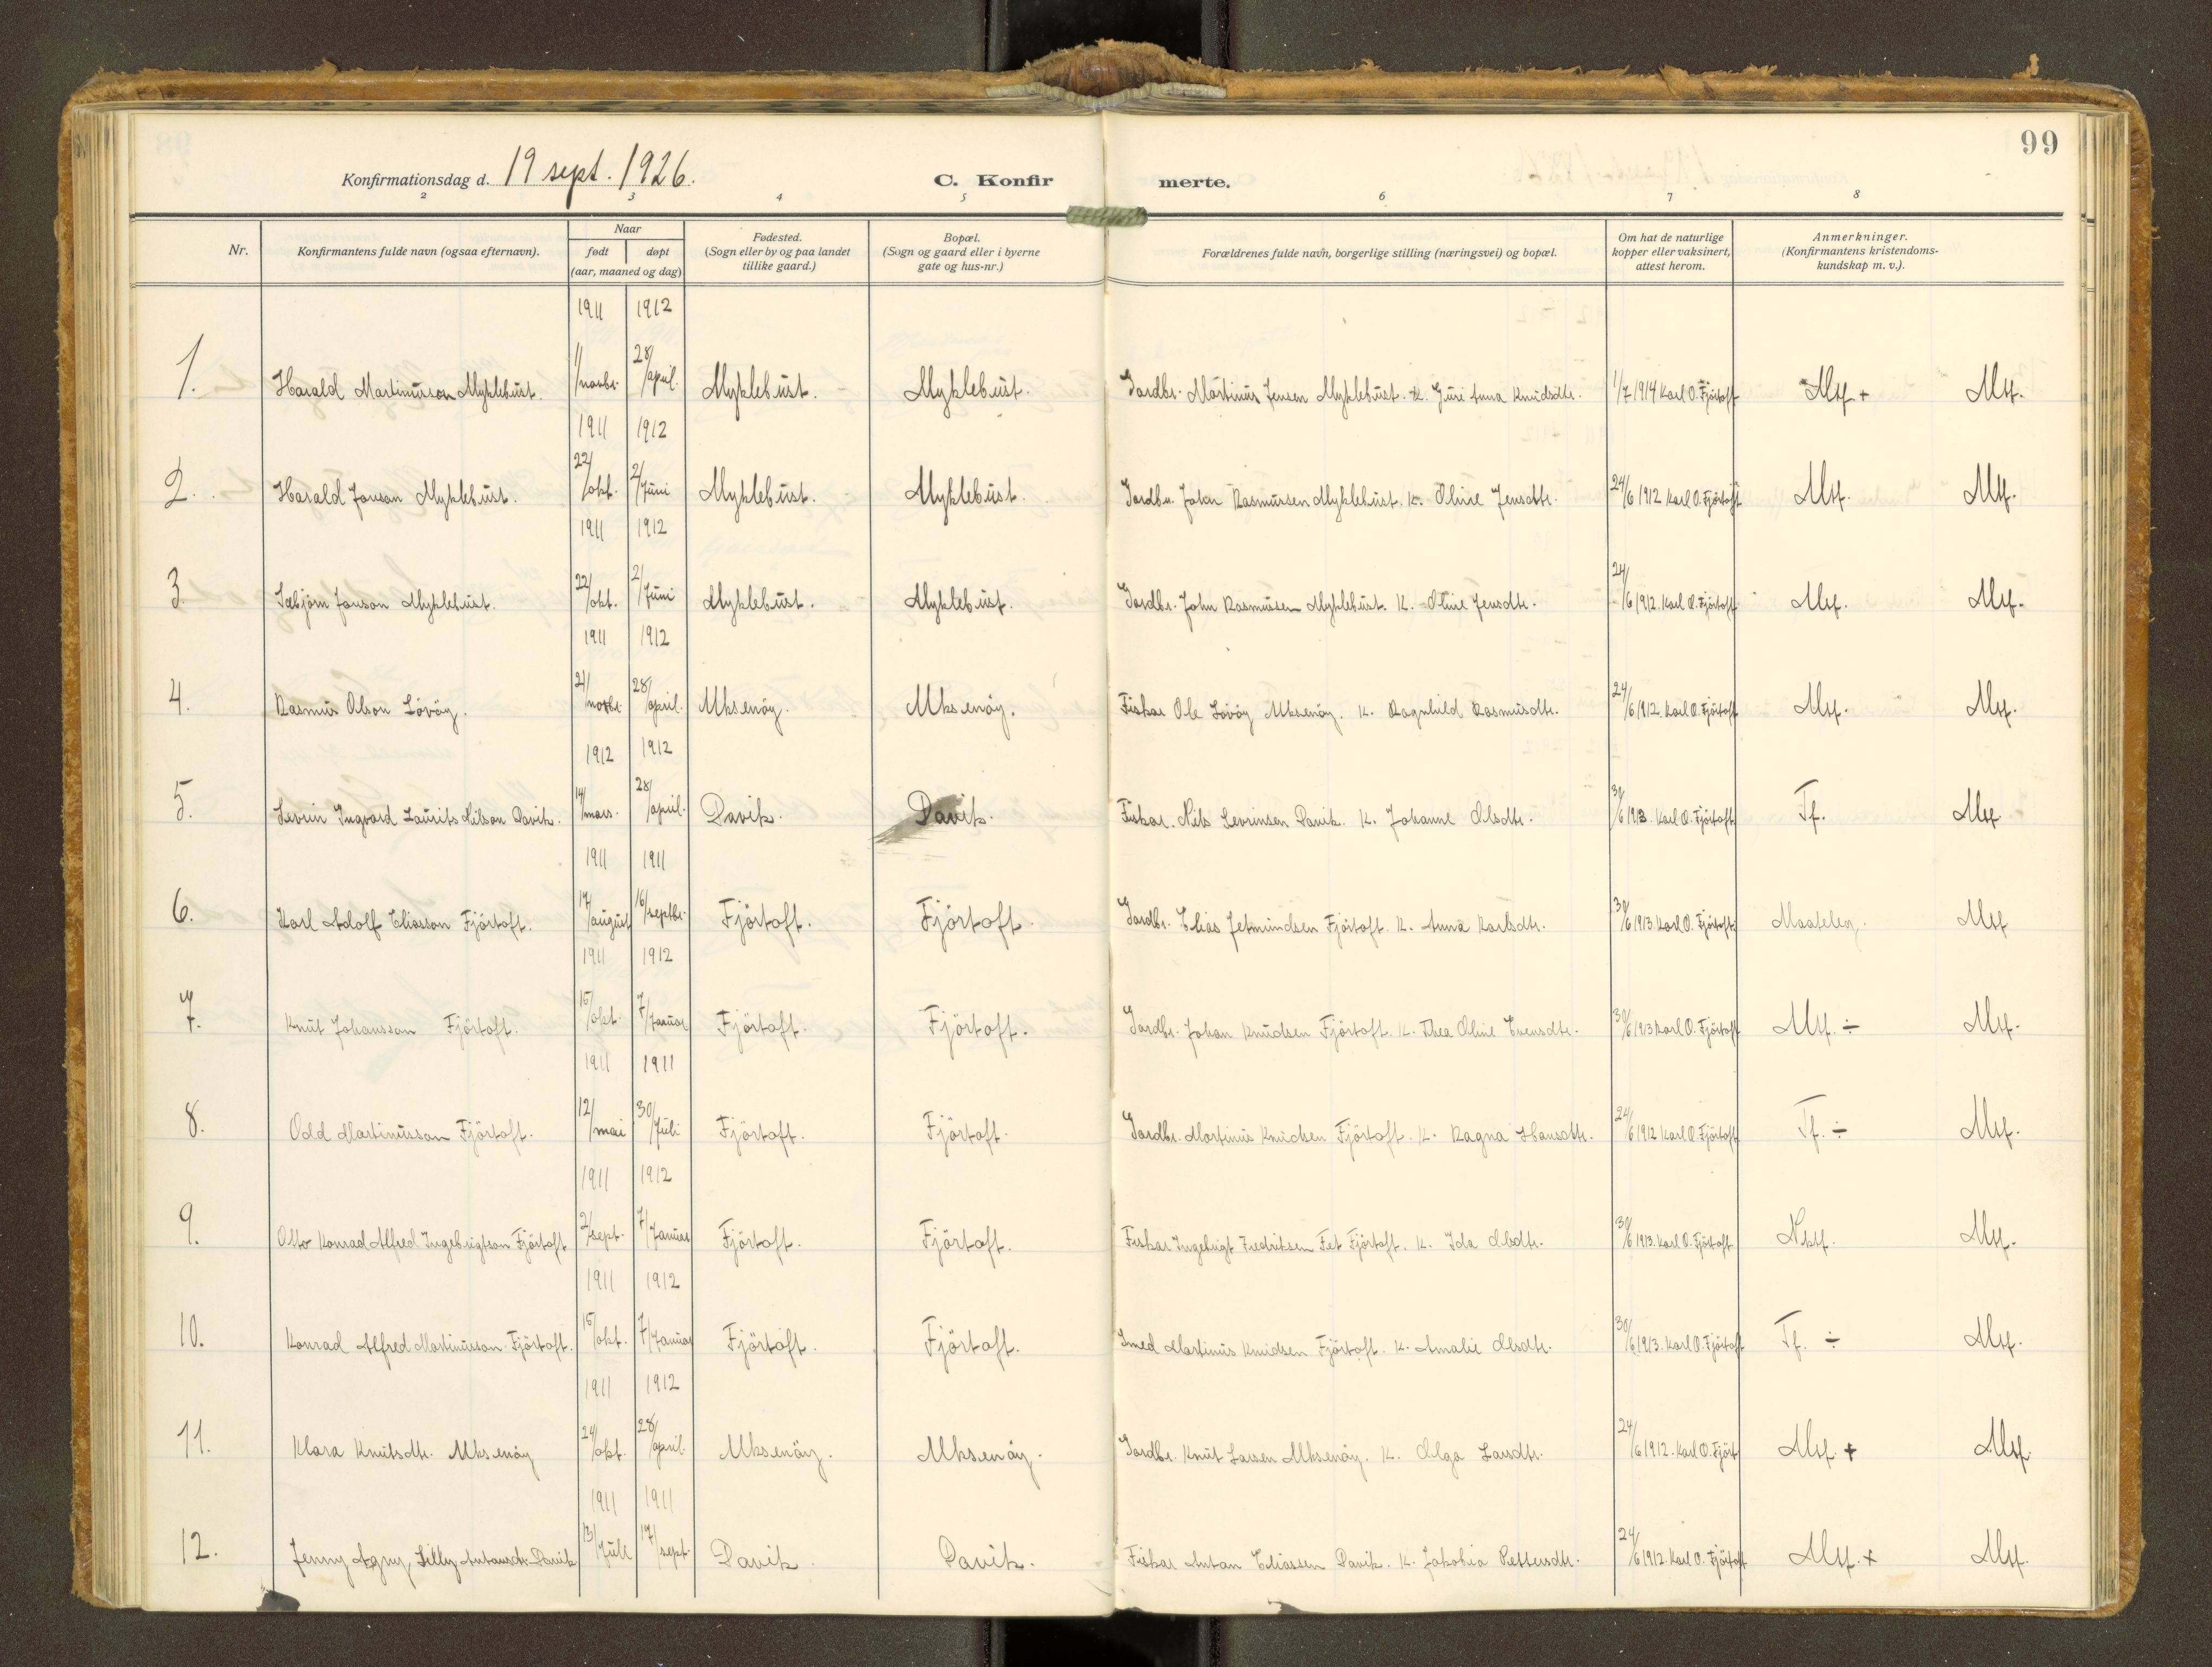 99
Konfirmationsdag d. 19 sept. 1926. C. Konfir merte.
2 3 4 5 6 7 8
Nr. Konfirmantens fulde navn (ogsaa efternavn). Naar født døpt (aar, maaned og dag) Fødested. (Sogn eller by og paa landet tillike gaard.) Bopæl. (Sogn og gaard eller i byerne gate og hus-nr.) Forældrenes fulde navn, borgerlige stilling (næringsvei) og bopæl. Om hat de naturlige kopper eller vaksinert, attest herom. Anmerkninger. (Konfirmantens kristendoms-kundskap m. v.).
1911 1912
1. Harald Martinusson Myklebust. 1/novbr. 28/april. Myklebust. Myklebust. Jordbr. Martinus Jensen Myklebust. K. Juri Anna Knudsdtr. 1/7 1914 Karl O. Fjörtoft Mtf + Mtf.
1911 1912
2. Harald Jonson Myklebust. 22/okt. 2/Juni Myklebust. Myklebust. Jordbr. John Rasmussen Myklebust. K. Oline Jensdtr. 24/6 1912 Karl O. Fjörtoft Mtf. Mtf.
1911 1912
3. Jonson Myklebust. 22/okt. 2/Juni Myklebust. Myklebust. Jordbr. John Rasmussen Myklebust. K. Oline Jensdtr. 24/6 1912. Karl O. Fjörtoft Mtf. Mtf.
1911 1912
4. Rasmus Olson Lövöy. 21/novbr. 28/april. Uksenöy. Uksenöy. Fiskar Ole Lövöy Uksenöy. K. Ragnhild Rasmusdtr. 24/6 1912. Karl O. Fjörtoft Mtf. Mtf.
1912 1912
5. Sevrin Ingvard Laurits Nilson Davik. 14/mars. 28/april. Davik. Davik. Fiskar. Nils Sevrinsen Davik. K. Johanne Olsdtr. 30/6 1913. Karl O. Fjörtoft Tf. Mtf
1911 1911
6. Karl Adolf Eliasson Fjörtoft. 17/august 16/septbr. Fjörtoft. Fjörtoft. Jordbr. Elias Jetmundsen Fjörtoft. K. Anna Karlsdtr. 30/6 1913. Karl O. Fjörtoft Maateleg. Mtf
1911 1912
7. Knut Johansson Fjörtoft. 15/okt. 7/Januar Fjörtoft. Fjörtoft. Jordbr. Johan Knudsen Fjörtoft. K. Thea Oline Evensdtr. 30/6 1913 Karl O. Fjörtoft Mtf. ÷ Mtf.
1911 1911
8. Odd Martinusson Fjörtoft. 12/mai 30/Juli Fjörtoft. Fjörtoft. Jordbr. Martinus Knudsen Fjörtoft. K. Ragna Hansdtr. 24/6 1912 Karl O. Fjörtoft Tf. ÷ Mtf.
1911 1912
9. Otto Konrad Alfred Ingebrigtson Fjörtoft 2/sept. 7/Januar Fjörtoft. Fjörtoft. Fiskar Ingebrigt Fredriksen Fet Fjörtoft. K. Ida Olsdtr. 30/6 1913. Karl O. Fjörtoft Nktf. Mtf.
1911 1912
10. Konrad Alfred Martinusson Fjörtoft. 15/okt. 7/Januar Fjörtoft. Fjörtoft. Smed Martinus Knudsen Fjörtoft. K. Amalie Olsdtr. 30/6 1913. Karl O. Fjörtoft Tf. ÷ Mtf.
1911 1912
11. Klara Knutsdtr. Uksenöy 24/okt. 28/april. Uksenöy. Uksenöy. Jordbr. Knut Larsen Uksenöy. K. Olga Larsdtr. 24/6 1912. Karl O. Fjört Mtf. + Mtf.
1911 1911
12. Jenny Agny Lilly Antonsdr. Davik 13/Juli 17/sept. Davik. Davik. Fiskar Anton Eliassen Davik. K. Jakobia Pettersdtr. 24/6 1912. Karl O. Fjörtoft Mtf. + Mtf.